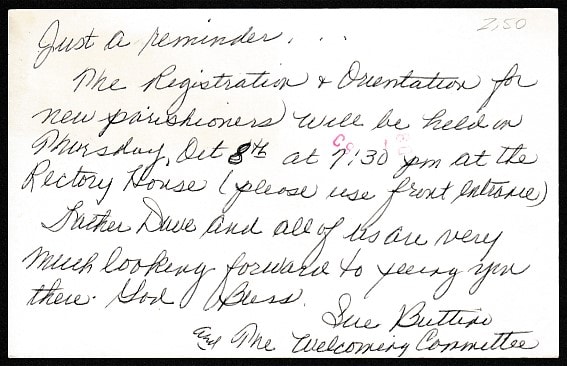 2,50
Just a reminder. . .
The Registration & Orientation for
new parishioners will be held on
Thursday, Oct 8th at 7:30 pm at the
Rectory House (please use front entrance)
Father Dave and all of us are very
much looking forward to seeing you
there. God Bless.
Sue
and The Welcoming Committee